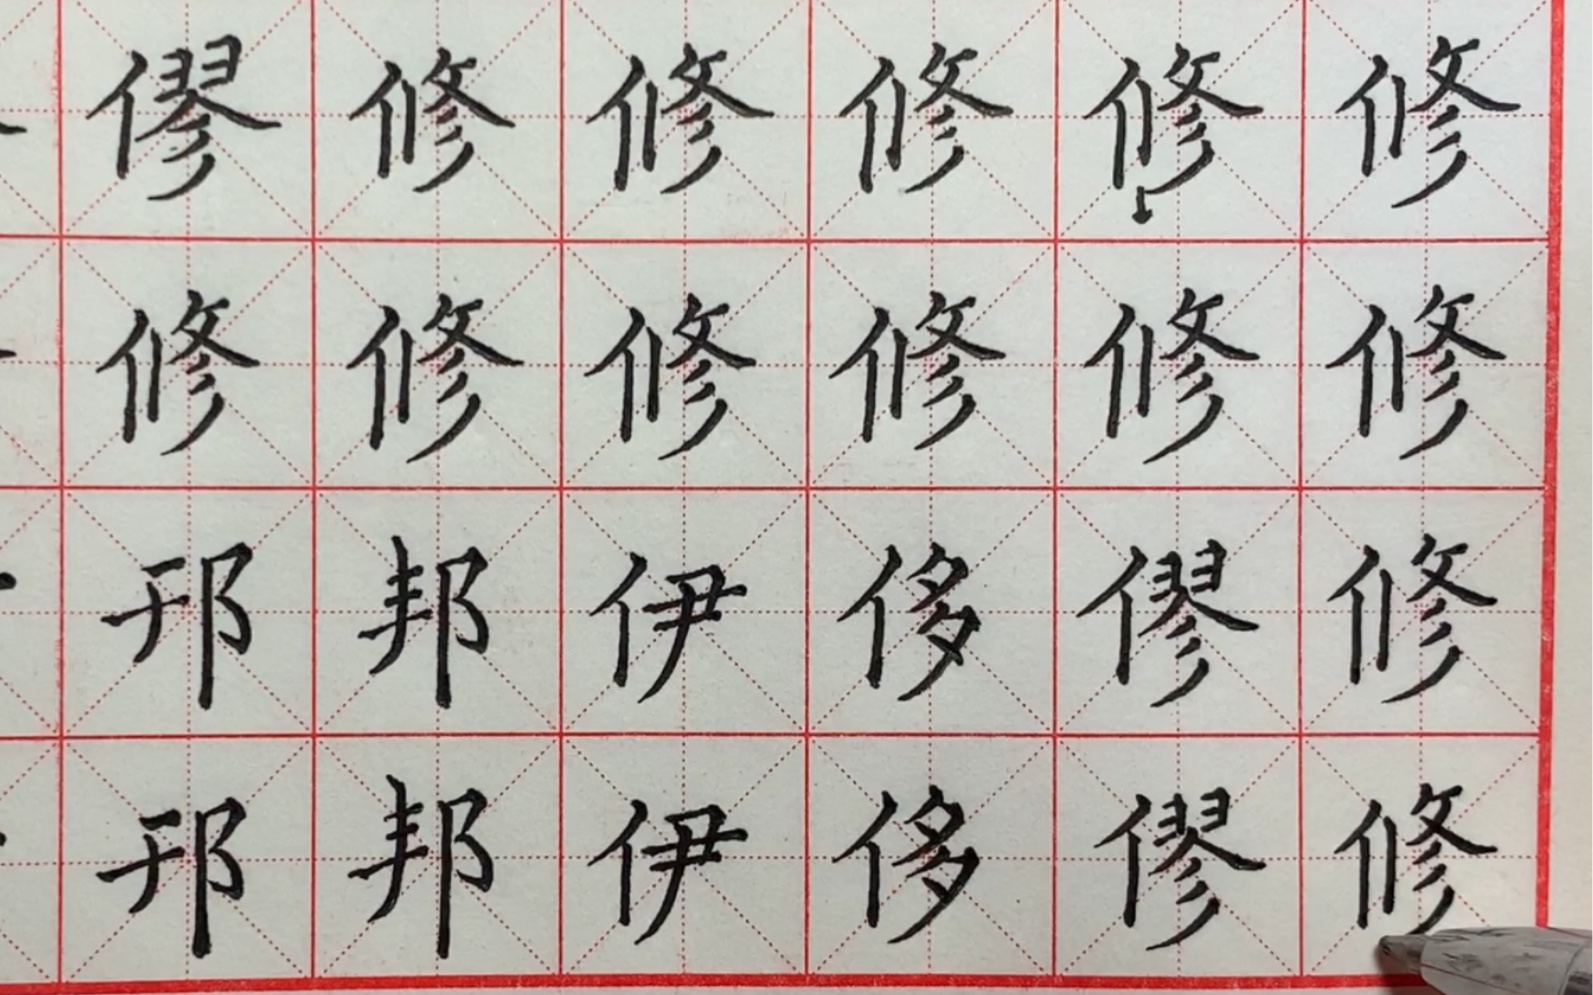 僇修修修修修
修修修修修修
邘邦伊侈僇修
邘邦伊侈僇修